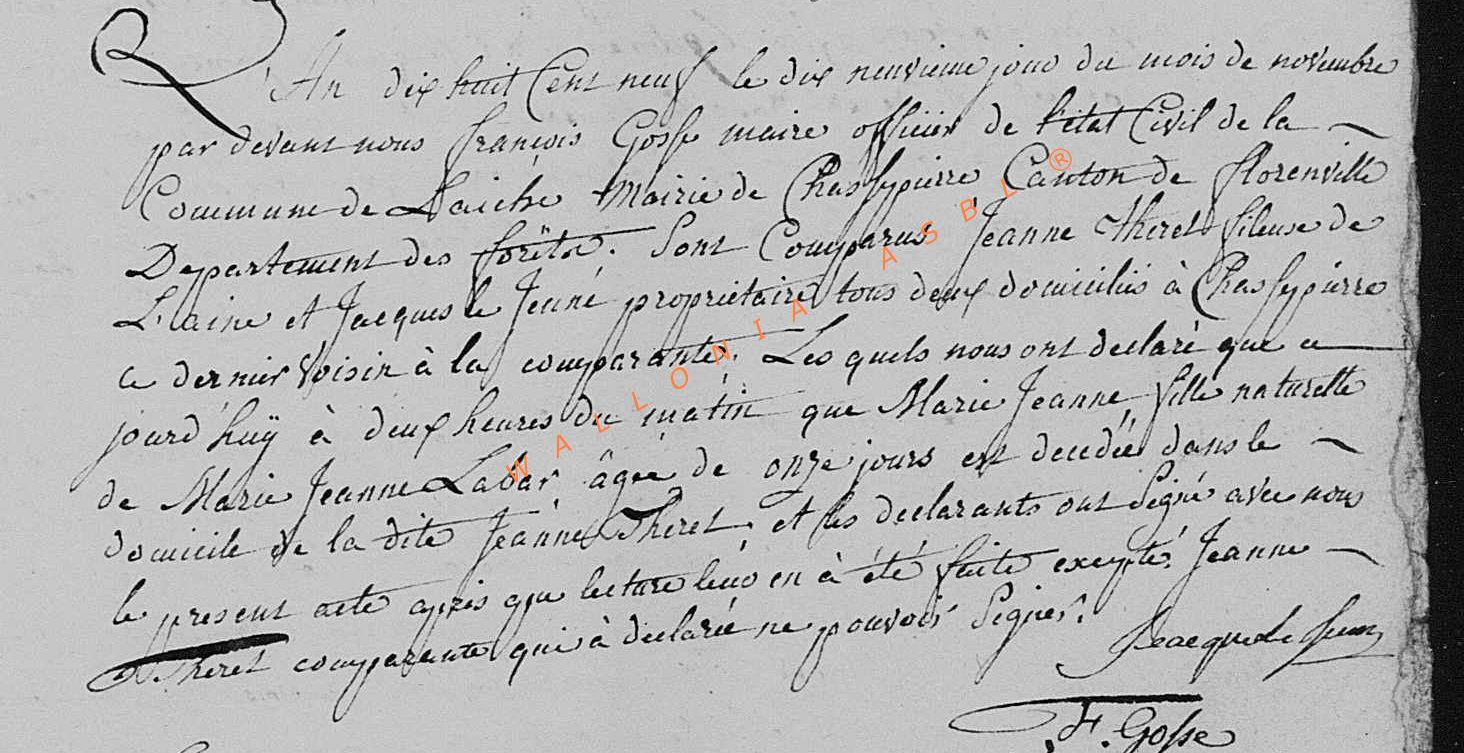 L'An dix huit Cent neuf le dix neuvieme jour du mois de novembre
par devant nous françois Gosse maire officier de l'état Civil de la
Commune de Laiche Mairie de Chassepierre Canton de florenville
Departement des forêts. Sont Comparus Jeanne theret fileuse de
Laine et Jacques le Jeune proprietaire tous deux domiciliés à Chassepierre
ce dernier Voisin à la comparante. Les quels nous ont declaré que ce
jourd'huÿ à deux heures du matin que Marie Jeanne fille naturelle
de Marie Jeanne Labar âgée de onze jours est decedée dans le
domicile de la dite Jeanne Theret, et les declarants ont Signé avec nous
le present acte après que lecture leur en à été faite excepté Jeanne
Theret comparante qui à declaré ne pouvoir Signer.
Jeacque le Jeune
F. Gosse
WALLONIA ASBL ®